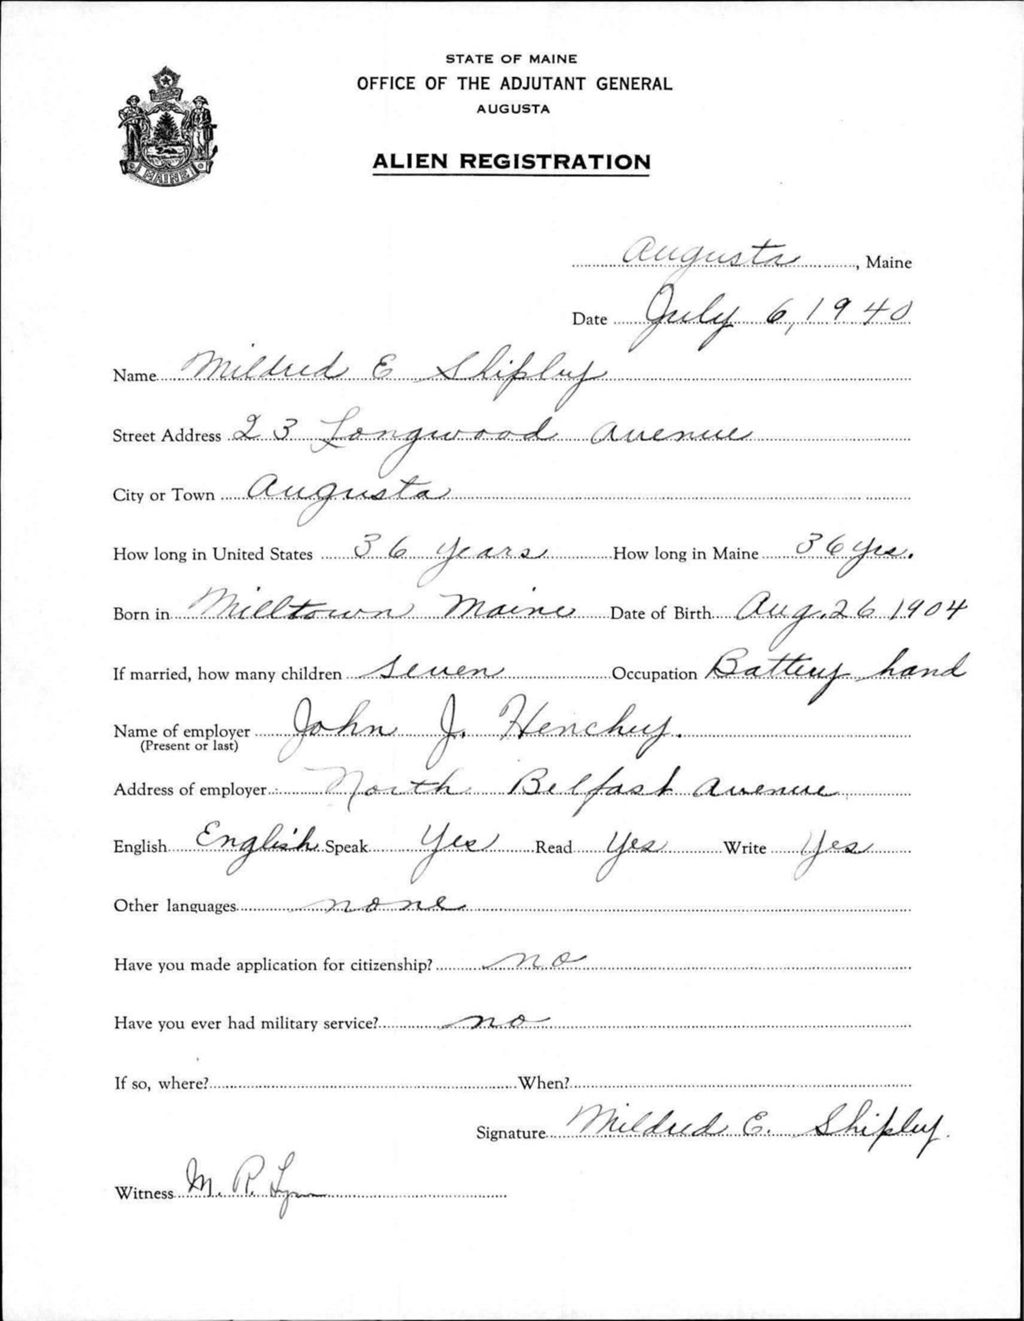 STATE OF MAINE
OFFICE OF THE ADJUTANT GENERAL
AUGUSTA
ALIEN REGISTRATION
MAINE
Augusta, Maine
Date July 6, 1940
Name Mildred E Shipley
Street Address 23 Longwood Avenue
City or Town Augusta
How long in United States 36 years How long in Maine 36 yrs.
Born in Milltown Maine Date of Birth Aug. 26 1904
If married, how many children seven Occupation Battery hand
Name of employer John J. Henchey.
(Present or last)
Address of employer North Belfast Avenue
English English Speak Yes Read Yes Write Yes
Other languages none
Have you made application for citizenship? no
Have you ever had military service? no
If so, where? When?
Signature Mildred E. Shipley.
Witness M. R.